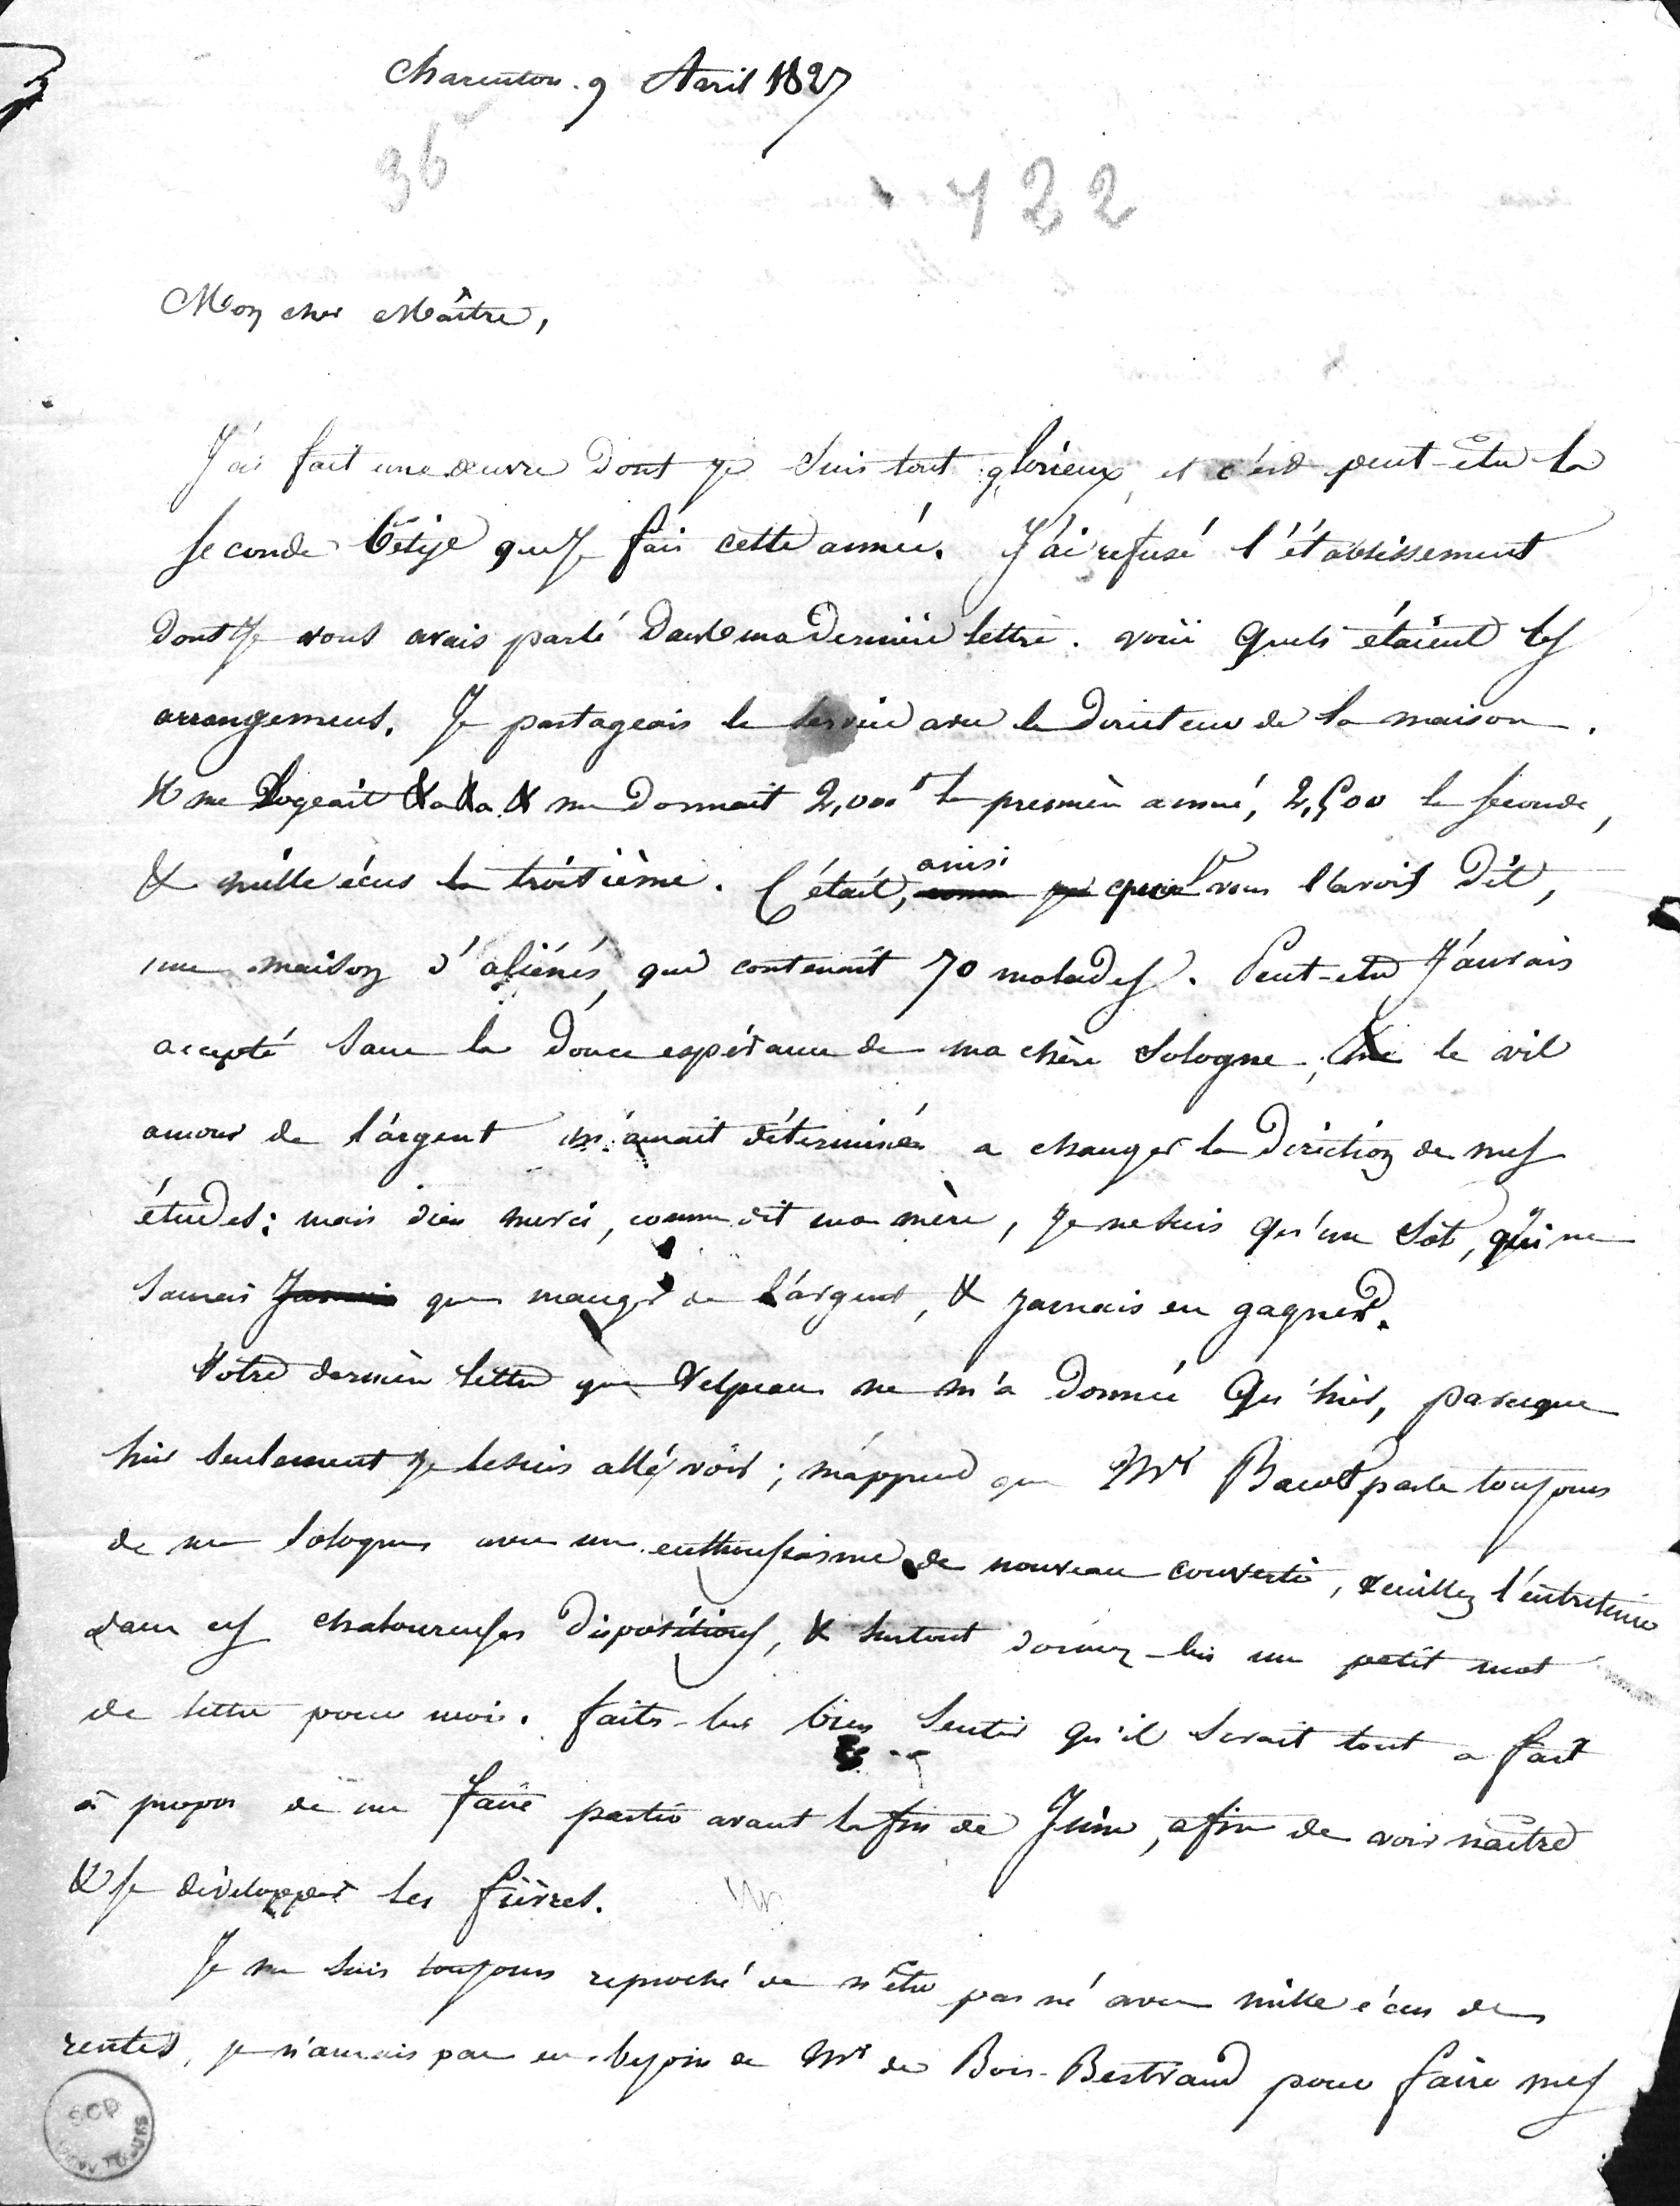 Charenton. 9 Avril 1827
36
422
Mon cher Maître,
J'ai fait une œuvre dont je suis tout glorieux, et c'est peut-être la
seconde bêtise que je fais cette année. J'ai refusé l'établissement
dont je vous avais parlé dans ma dernière lettre. voici quels étaient les
arrangemens. Je partageais le service avec le Directeur de la maison.
Il me logeait &a &a & me donnait 2,000f la première année, 2,500 la seconde,
& mille écus la troisième. C'était, ainsi que je vous l'avois dit,
une maison d'aliénés, qui contenait 70 malades. Peut-etre j'aurais
accepté sans la douce espérance de ma chère Sologne, le vil
amour de l'argent m'aurait déterminé a changer la direction de mes
études: mais dieu merci, comme dit ma mère, je ne suis qu'un sot, qui ne
saurais jamais que manger de l'argent, & jamais en gagner.
Votre dernière lettre que Velpeau ne m'a donnée qu'hier, parceque
hier seulement je le suis allé voir; m'apprend que Mr Bacot parle toujours
de ma Sologne avec un enthousiasme de nouveau converti, veuillez l'entretenir
dans ces chaloureuses dispositions, & surtout donnez-lui un petit mot
de lettre pour moi. faites-lui bien sentir qu'il serait tout a fait
à propos de me faire partir avant la fin de Juin, afin de voir naître
& se développer les fièvres.
Je me suis toujours reproché de n'être pas né avec mille écus de
rentes, je n'aurais pas eu besoin de Mr de Bois-Bertrand pour faire mes
SCD